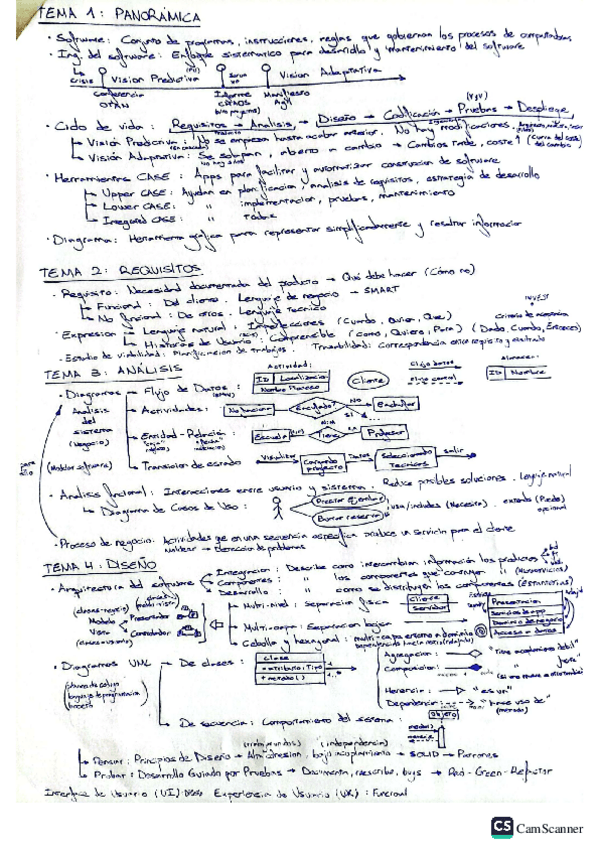 TEMA 1: PANORÁMICA
· Software: Conjunto de programas, instrucciones, reglas que gobiernan los procesos de computadoras
· Ing. del software: Enfoque sistematico para desarrollo y mantenimiento del software
crisis Vision Predictiva Vision Adaptativa
Conferencia OTAN Informe CHAOS Manifiesto Agil
· Ciclo de vida: Requisitos → Analisis → Diseño → Codificación → Pruebas → Despliegue
Vision Predictiva: No se empieza hasta acabar anterior. No hay modificaciones
Vision Adaptativa: Se solapan, abierto a cambio → Cambios tarde, coste ↑
· Herramientas CASE: Apps para facilitar y automatizar construccion de software
Upper CASE: Ayudan en planificacion, analisis de requisitos, estrategia de desarrollo
Lower CASE: " implementacion, pruebas, mantenimiento
Integrated CASE: " Todas
· Diagrama: Herramienta gráfica para representar simplificadamente y resaltar informacion
TEMA 2: REQUISITOS
· Requisito: Necesidad documentada del producto → Qué debe hacer (Cómo no)
Funcional: Del cliente. Lenguaje de negocio → SMART
No funcional: De otros. Lenguaje Tecnico
INVEST
· Expresion Lenguaje natural. (Cuando, Quien, Que)
Historias de Usuario: Comprensible (Como, Quiero, Para) (Dado, Cuando, Entonces)
· Estudio de viabilidad: Planificacion de trabajos. Trazabilidad: Correspondencia entre requisito y
TEMA 3: ANÁLISIS
Actividad:
Almacen:
· Diagramas Flujo de Datos:
ID Localizacion
Nombre Proceso
Cliente
Flujo datos
Flujo control
ID Nombre
Analisis del sistema (Negocio)
Actividades:
Enchufado?
NO
SI
Enchufar
Entidad-Relación:
Escuela
Tiene
Profesor
(Modelar software)
Transicion de estado
Visualizar
Cargando proyecto
Datos
Seleccionado Tecnicos
salir
· Analisis funcional: Interacciones entre usuario y sistema. Reduce posibles soluciones. Lenguaje natural
Diagrama de Casos de Uso:
Borrar reserva
usa/includes (Necesita). extends (Puede) opcional
· Proceso de negocio: Actividades que en una secuencia especifica produce un servicio para el cliente
Modelar → Deteccion de problemas
TEMA 4: DISEÑO
· Arquitectura del software
Integracion: Describe como intercambian información los productos
Componentes: " los componentes que contienen " (Microservicios)
Desarrollo: " como se distribuyen los componentes (Estructuras)
Modelo
Vista
Presentador
Controlador
Multi-nivel: Separacion fisica
Cliente
Servidor
Presentacion
Servicios de app
Dominio de negocio
Acceso a datos
Multi-capa: Separacion logica
Cebolla y hexagonal: multi-capa en torno a dominio
· Diagramas UML
De clases:
clase
+ atributo: Tipo
+ metodo()
Agregacion:
Composicion:
Herencia: "es un"
Dependencia: "hace uso de"
De secuencia: Comportamiento del sistema:
Objeto
Pensar: Principios de Diseño → Alta cohesion, bajo acoplamiento → SOLID → Patrones
(independencia)
Probar: Desarrollo Guiado por Pruebas → Documenta, reescribe, bugs → Red-Green-Refactor
Interface de Usuario (UI): Experiencia de Usuario (UX): Funcional
CS CamScanner